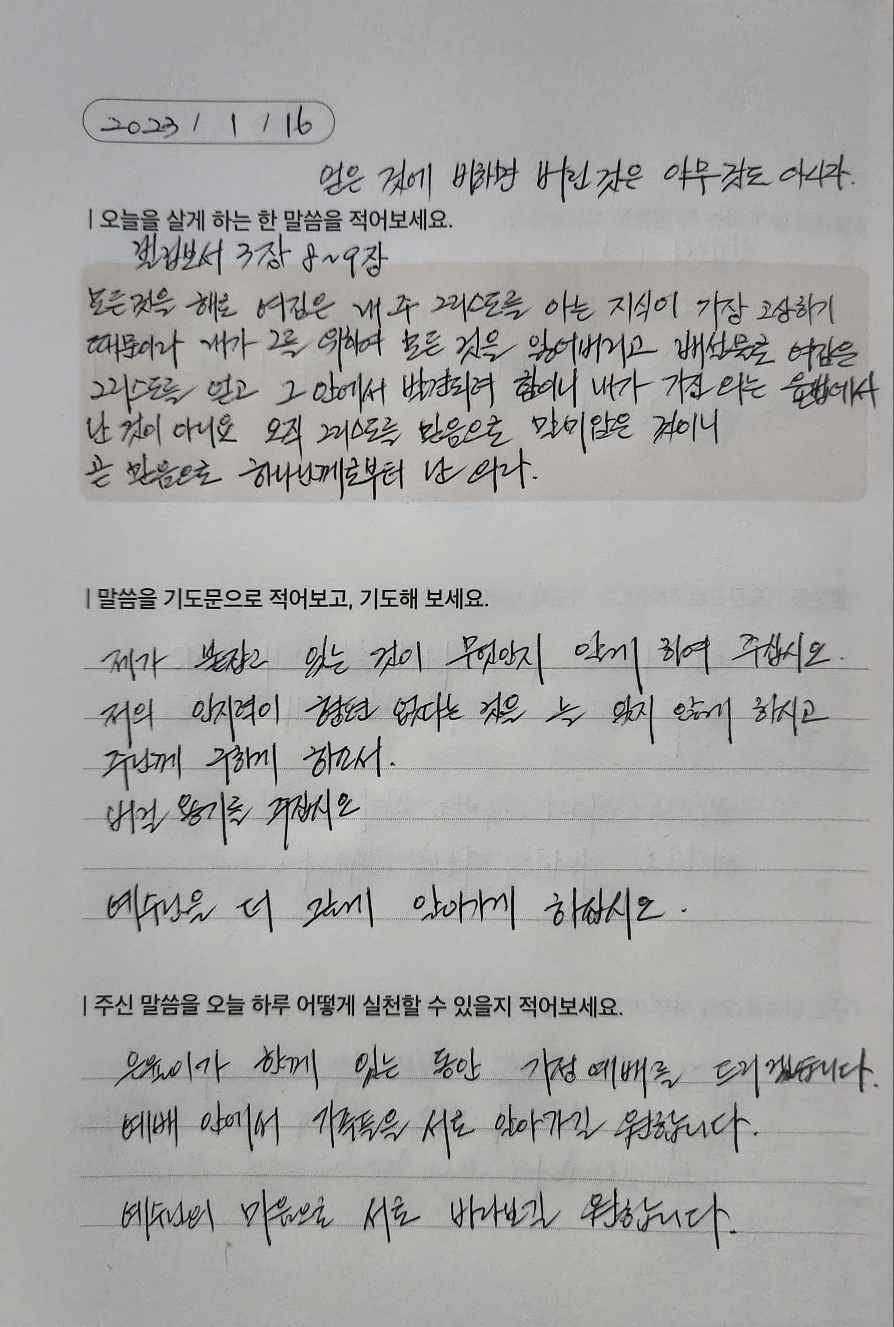 2023 / 1 / 16
얻은 것에 비하면 버린 것은 아무것도 아니다.
| 오늘을 살게 하는 한 말씀을 적어보세요.
빌립보서 3장 8~9장
모든것을 해로 여김은 내 주 그리스도를 아는 지식이 가장 고상하기
때문이라 내가 그를 위하여 모든 것을 잃어버리고 배설물로 여김은
그리스도를 얻고 그 안에서 발견되려 함이니 내가 가진 의는 율법에서
난 것이 아니요 오직 그리스도를 믿음으로 말미암은 것이니
곧 믿음으로 하나님께로부터 난 의라.
| 말씀을 기도문으로 적어보고, 기도해 보세요.
제가 붙잡고 있는 것이 무엇인지 알게 하여 주십시오.
저의 인지력이 형편 없다는 것을 늘 잊지 않게 하시고
주님께 구하게 하소서.
버릴 용기를 주십시오
예수님을 더 깊게 알아가게 하십시오.
| 주신 말씀을 오늘 하루 어떻게 실천할 수 있을지 적어보세요.
함께 있는 동안 가정 예배를 드리겠습니다.
예배 안에서 가족들을 서로 알아가길 원합니다.
예수님의 마음으로 서로 바라보길 원합니다.